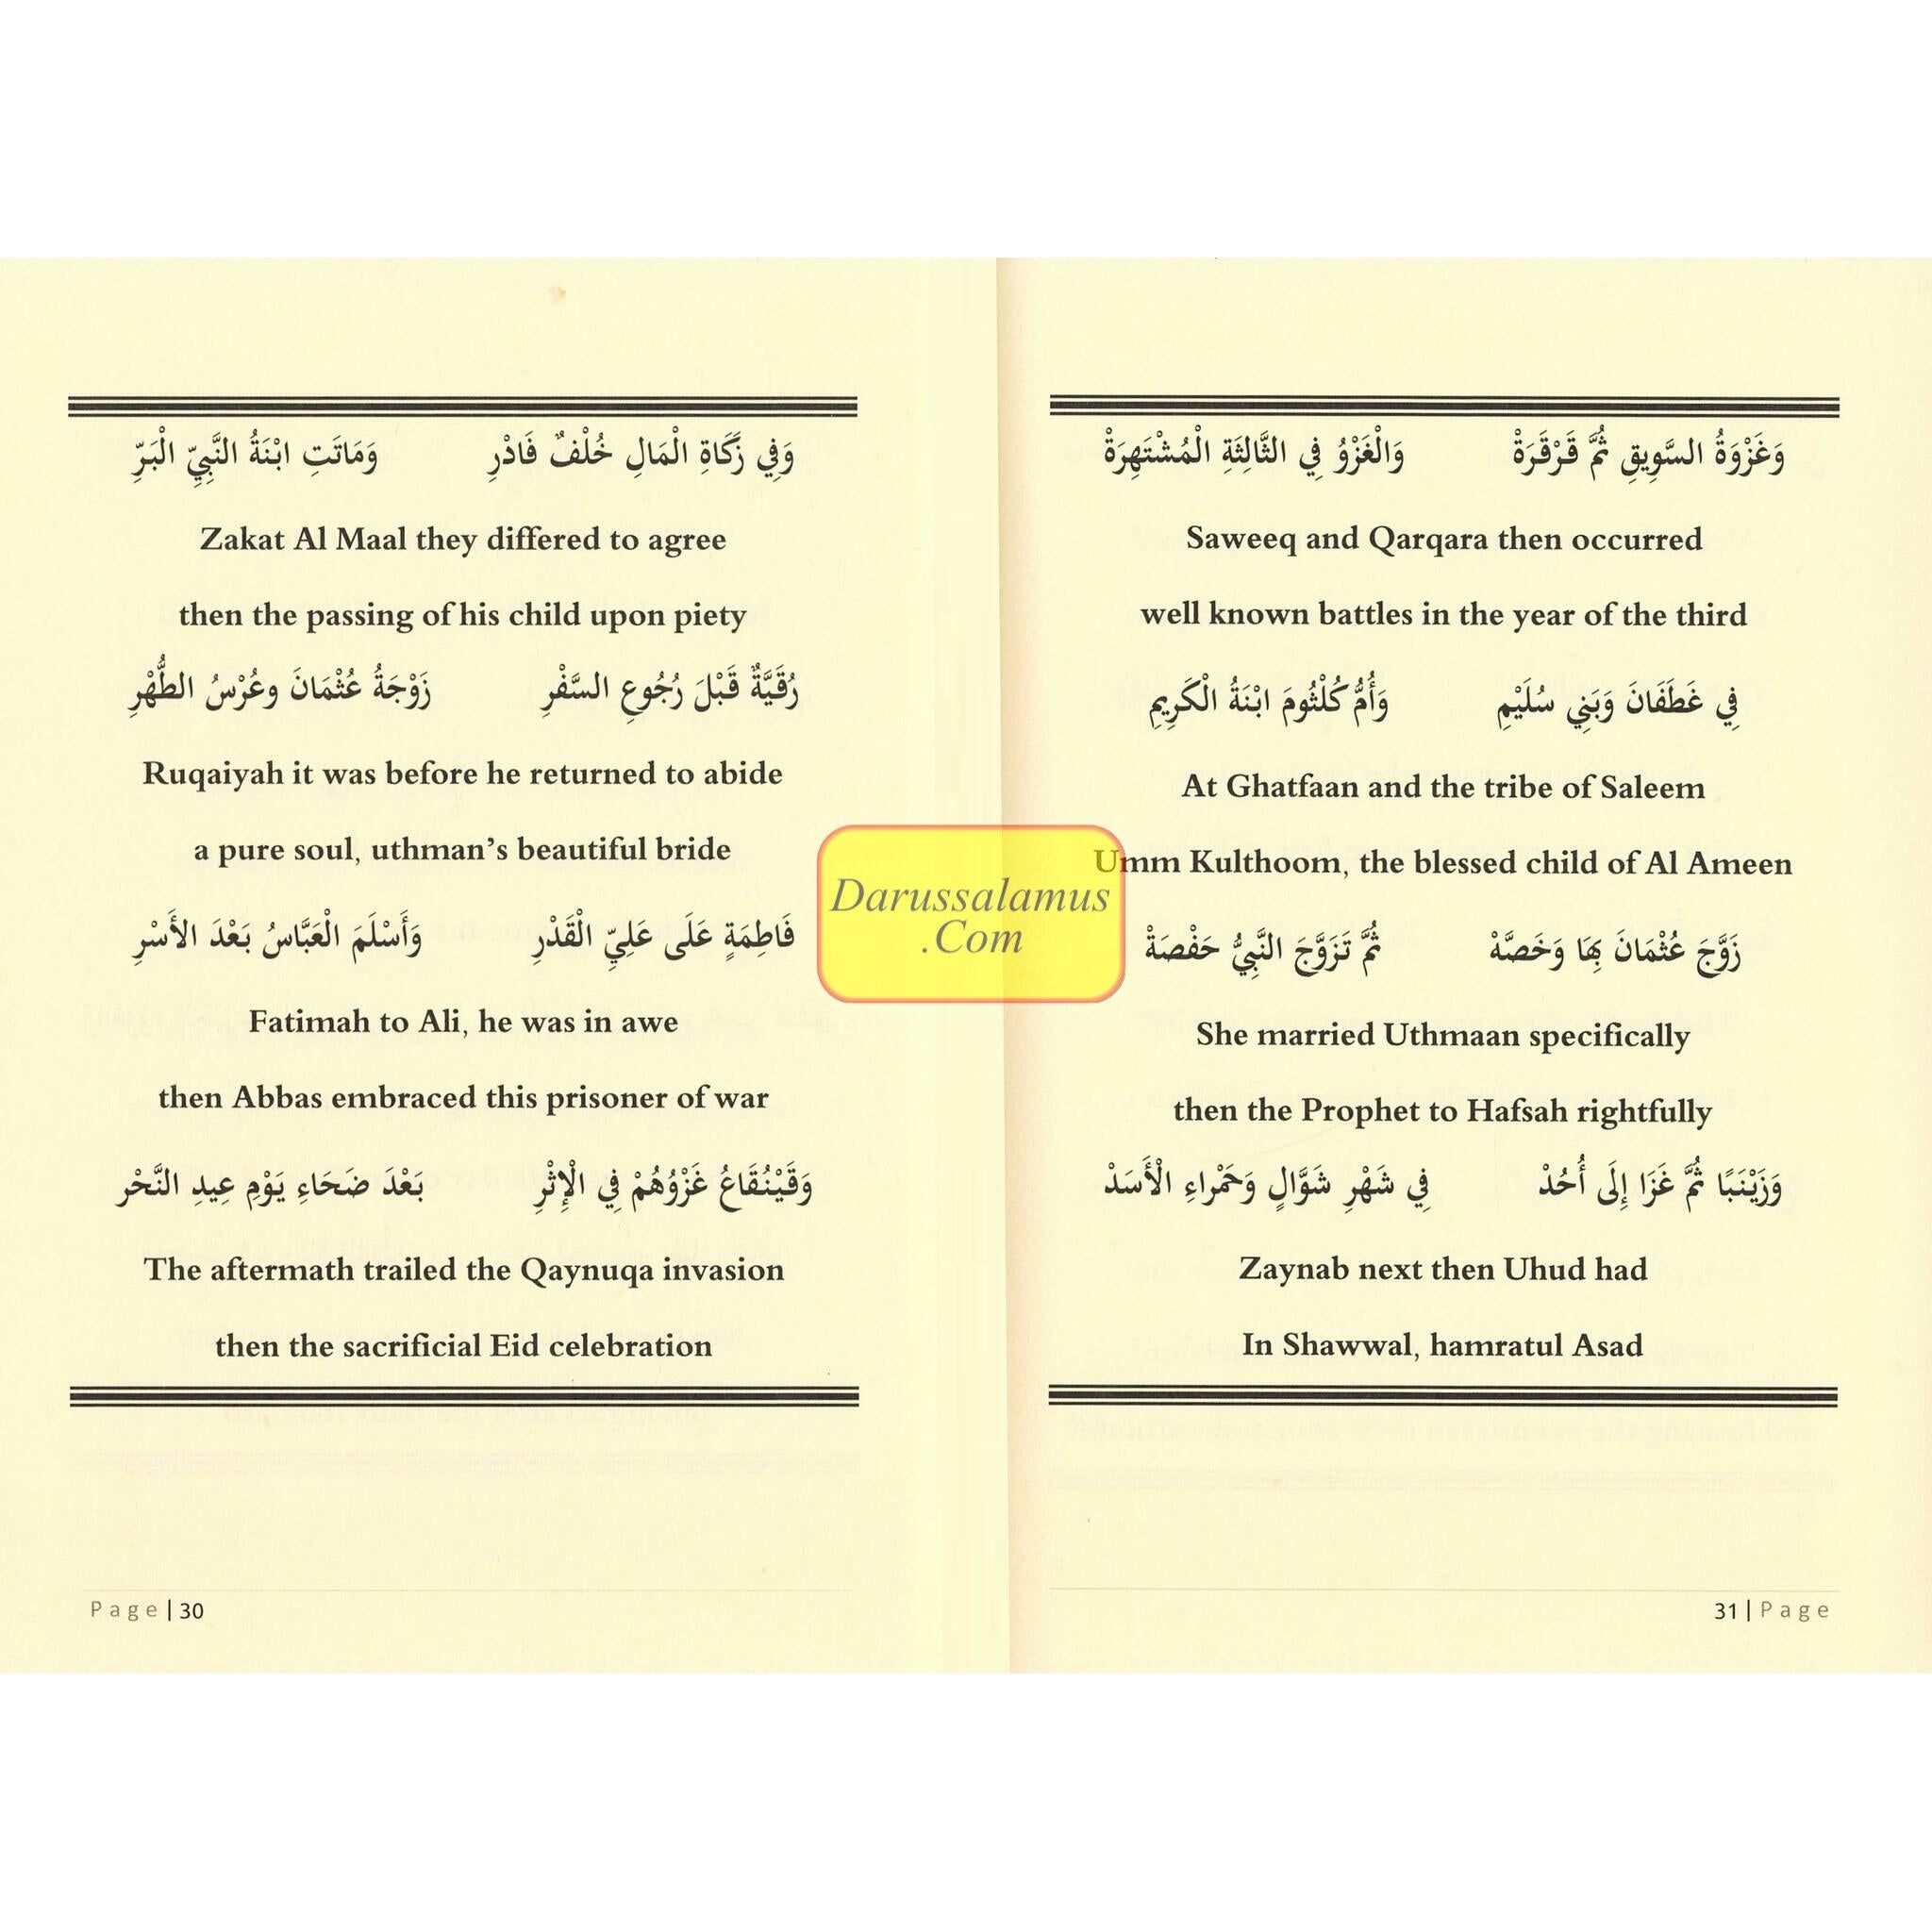 وَفِي زَكَاةِ الْمَالِ خُلْفٌ فَادْرِ وَمَاتَتِ ابْنَةُ النَّبِيِّ الْبَرِّ
Zakat Al Maal they differed to agree
then the passing of his child upon piety
رُقَيَّةٌ قَبْلَ رُجُوعِ السَّفْرِ زَوْجَةُ عُثْمَانَ وعُرْسُ الطُّهْرِ
Ruqaiyah it was before he returned to abide
a pure soul, uthman’s beautiful bride
فَاطِمَةٍ عَلَى عَلِيِّ الْقَدْرِ وَأَسْلَمَ الْعَبَّاسُ بَعْدَ الأَسْرِ
Fatimah to Ali, he was in awe
then Abbas embraced this prisoner of war
وَقَيْنُقَاعُ غَزْوُهُمْ فِي الْإِثْرِ بَعْدَ ضَحَاءِ يَوْمِ عِيدِ النَّحْرِ
The aftermath trailed the Qaynuqa invasion
then the sacrificial Eid celebration
Page | 30
وَغَزْوَةُ السَّوِيقِ ثُمَّ قَرْقَرَةْ وَالْغَزْوُ فِي الثَّالِثَةِ الْمُشْتَهِرَةْ
Saweeq and Qarqara then occurred
well known battles in the year of the third
فِي غَطَفَانَ وَبَنِي سُلَيْمِ وَأُمُّ كُلْثُومَ ابْنَةُ الْكَرِيمِ
At Ghatfaan and the tribe of Saleem
Umm Kulthoom, the blessed child of Al Ameen
زَوَّجَ عُثْمَانَ بِهَا وَخَصَّهْ ثُمَّ تَزَوَّجَ النَّبِيُّ حَفْصَةْ
She married Uthmaan specifically
then the Prophet to Hafsah rightfully
وَزَيْنَبًا ثُمَّ غَزَا إِلَى أُحُدْ فِي شَهْرِ شَوَّالٍ وَحَمْراءِ الْأَسَدْ
Zaynab next then Uhud had
In Shawwal, hamratul Asad
31 | Page
Darussalamus
.Com